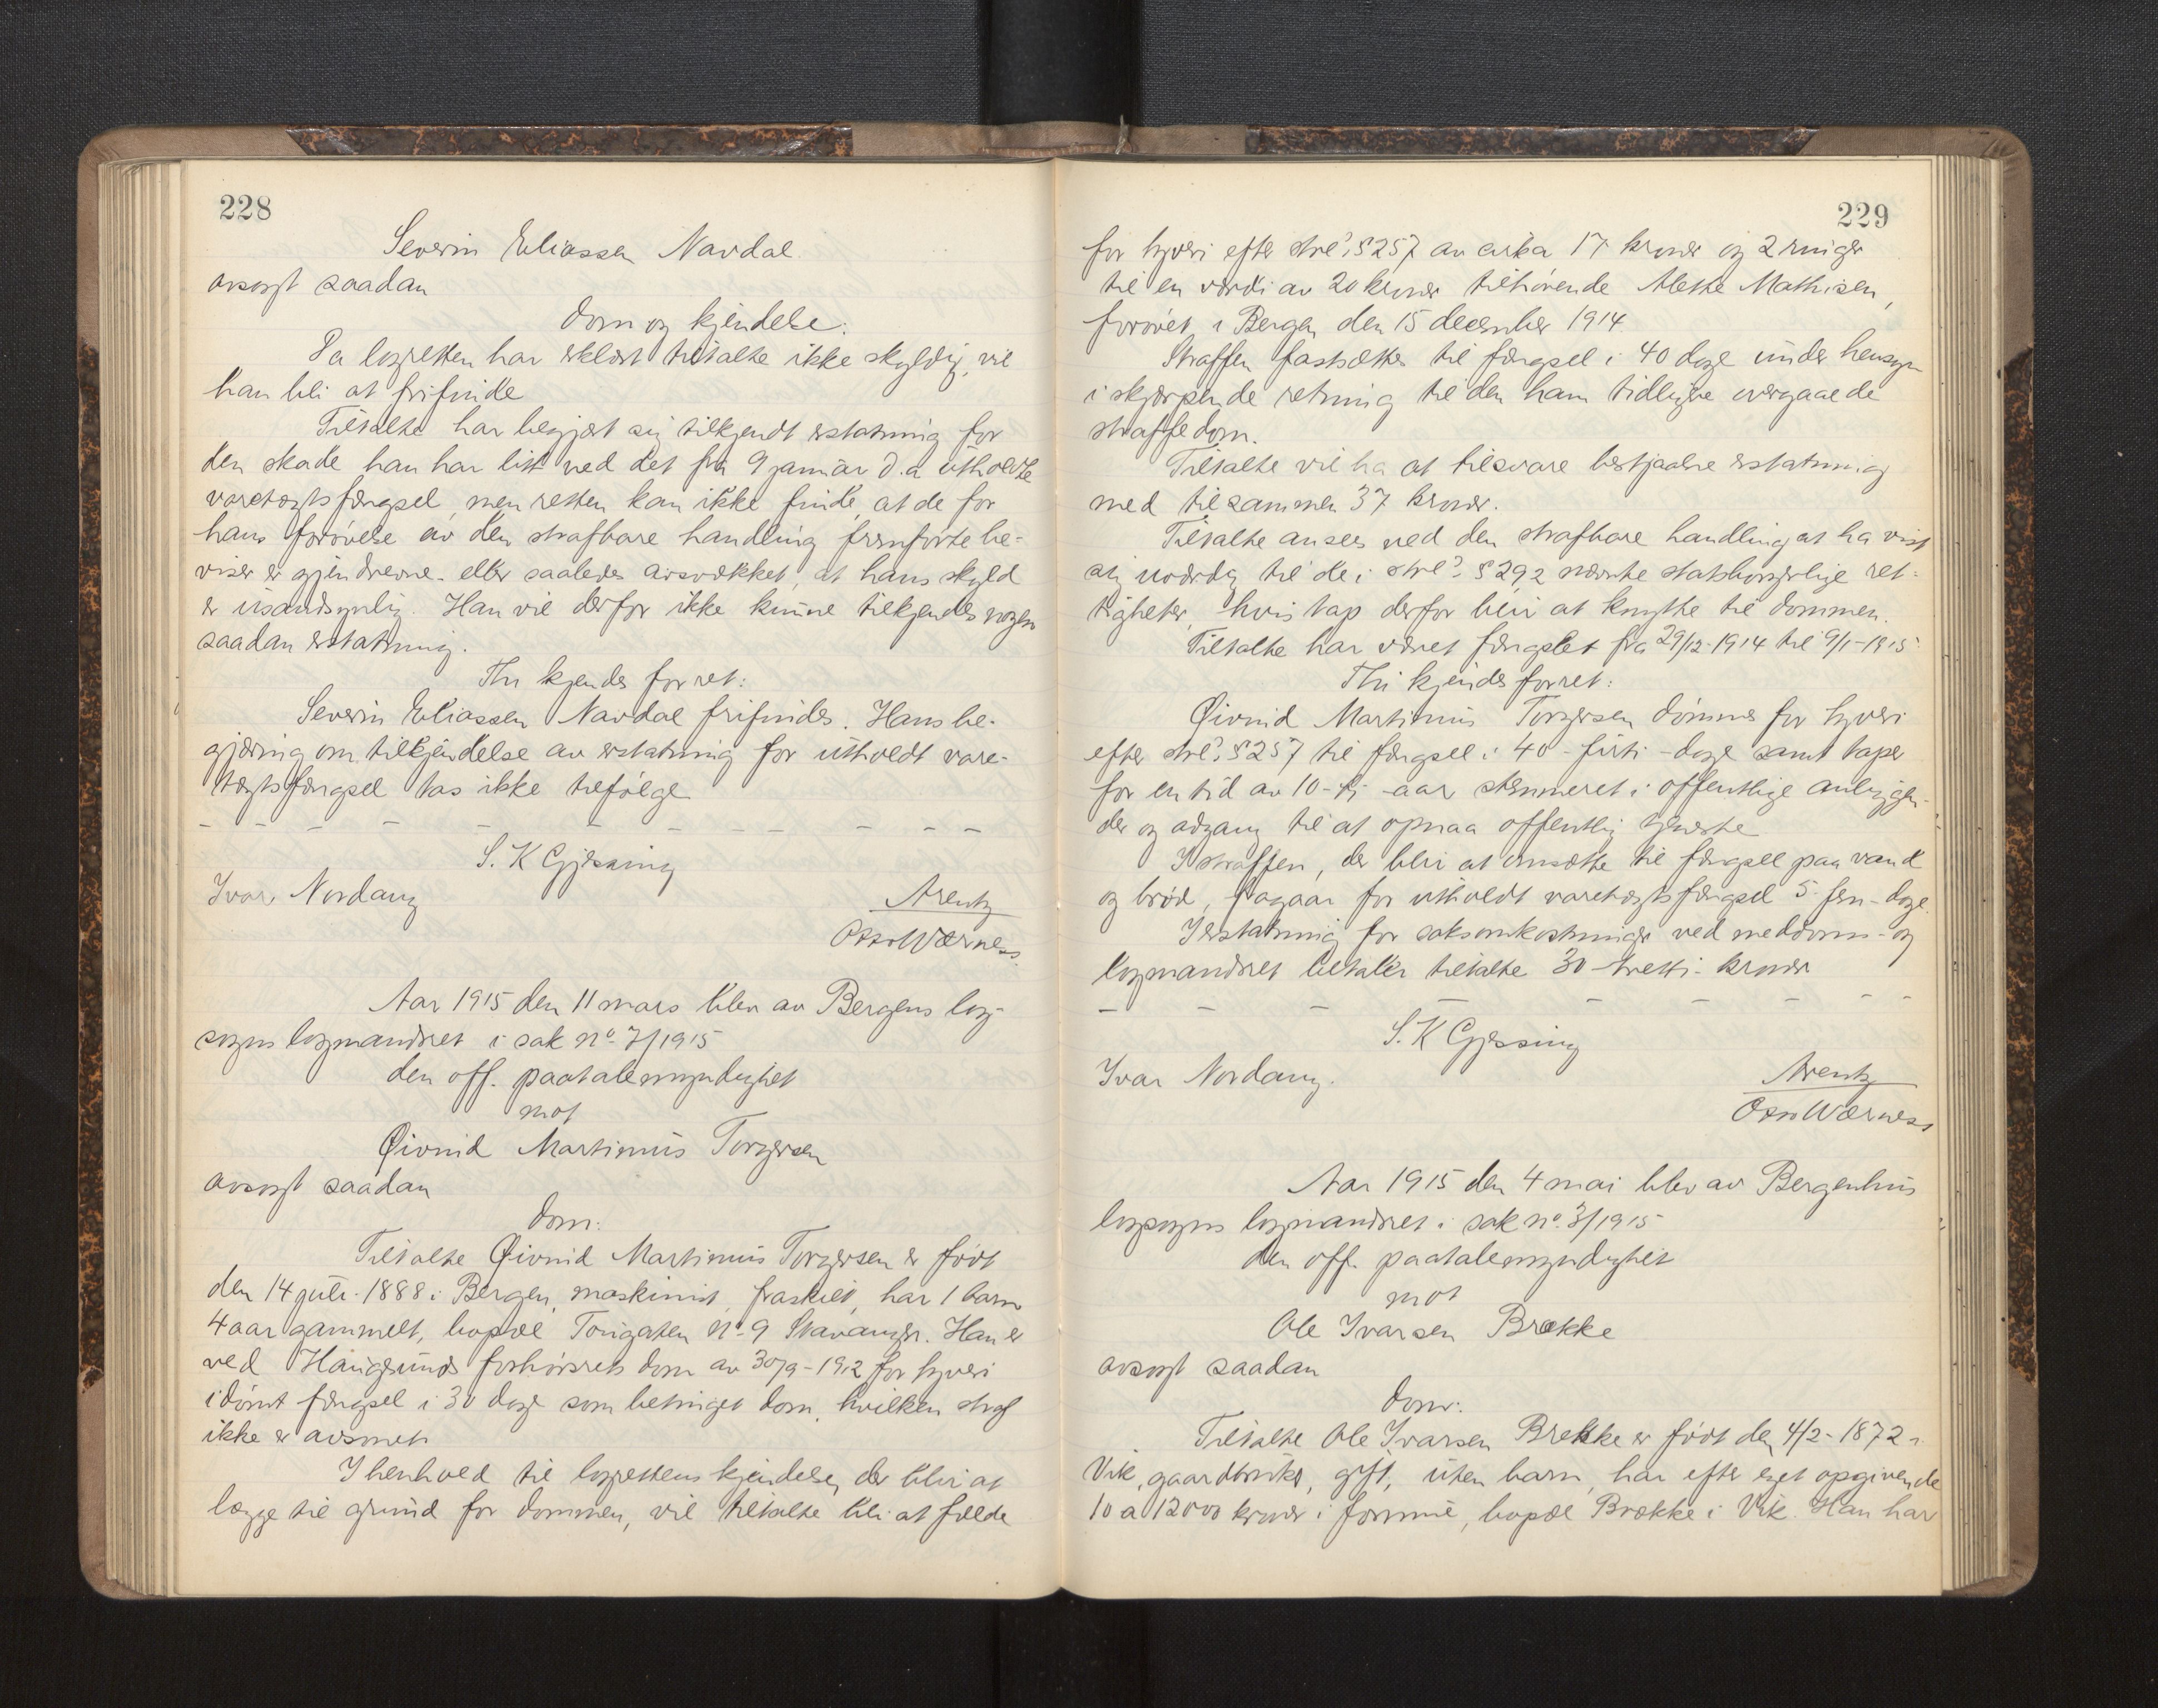 228
Severin Eliassen Navdal
avsagt saadan
dom og kjendelse:
Da lagretten har erklært tiltalte ikke skyldig, vil
han bli at frifinde
Tiltalte har begjært sig tilkjendt erstatning for
den skade han har lidt ved det fra 9 januar d.a utholdte
varetægtsfængsel, men retten kan ikke finde, at de for
hans forøvelse av den strafbare handling fremførte be-
viser er gjendrevne eller saaledes avsvækket, at hans skyld
er usandsynlig. Han vil derfor ikke kunne tilkjendes nogen
saadan erstatning.
Thi kjendes for ret:
Severin Eliassen Navdal frifindes. Hans be-
gjæring om tilkjendelse av erstatning for utholdt vare-
tægtsfængsel tas ikke tilfølge
S. K Gjessing
Ivar Nordang
Arentz
Otto Wærness.
Aar 1915 den 11 mars blev av Bergens lag-
sogns lagmandsret i sak no. 7/1915
den off. paatalemyndighet
mot
Øivind Martinius Torgersen
avsagt saadan
dom:
Tiltalte Øivind Martinius Torgersen er født
den 14 juli 1888 i Bergen, maskinist, fraskilt, har 1 barn
4 aar gammelt, bopæl No. 9 Stavanger. Han er
ved Haugesunds forhørsrets dom av 30/9-1912 for tyveri
idømt fængsel i 30 dage som betinget dom, hvilken straf
ikke er avsonet.
I henhold til lagrettens kjendelse, der blir at
lægge til grund for dommen, vil tiltalte bli at fælde
229
for tyveri efter strl. § 257 av cirka 17 kroner og 2 ringer
til en værdi av 20 kroner tilhørende Alette Mathisen,
forøvet i Bergen den 15 december 1914
Straffen fastsættes til fængsel i 40 dage under hensyn
i skjærpende retning til den ham tidligere overgaaede
straffedom.
Tiltalte vil ha at tilsvare bestjaalne erstatning
med tilsammen 37 kroner.
Tiltalte ansees ved den strafbare handling at ha vist
sig uværdig til de i strl. § 29,2 nævnte statsborgerlige ret-
tigheter, hvis tap derfor blir at knytte til dommen.
Tiltalte har været fængslet fra 29/12-1914 til 9/1-1915
Thi kjendes for ret:
Øivind Martinius Torgersen dømmes for tyveri
efter strl. § 257 til fængsel i 40-firti-dage samt taper
for en tid av 10-ti-aar stemmeret i offentlige anliggen-
der og adgang til at opnaa offentlig tjeneste
I straffen, der blir at omsætte til fængsel paa vand
og brød, fragaar for utholdt varetægtsfængsel 5-fem-dage.
I erstatning for saksomkostninger ved meddoms- og
lagmandsret betaler tiltalte 30-tretti-kroner
S. K Gjessing
Ivar Nordang.
Arentz
Otto Wærness
Aar 1915 den 4 mai blev av Bergenhus
lagsogns lagmandsret i sak no. 3/1915
den off. paatalemyndighet
mot
Ole Ivarsen Brække
avsagt saadan
dom:
Tiltalte Ole Ivarsen Brække er født den 4/2-1872 i
Vik, gaardbruker, gift, uten barn, har efter eget opgivende
10 a 12000 kroner i formue, bopæl Brække i Vik. Han har